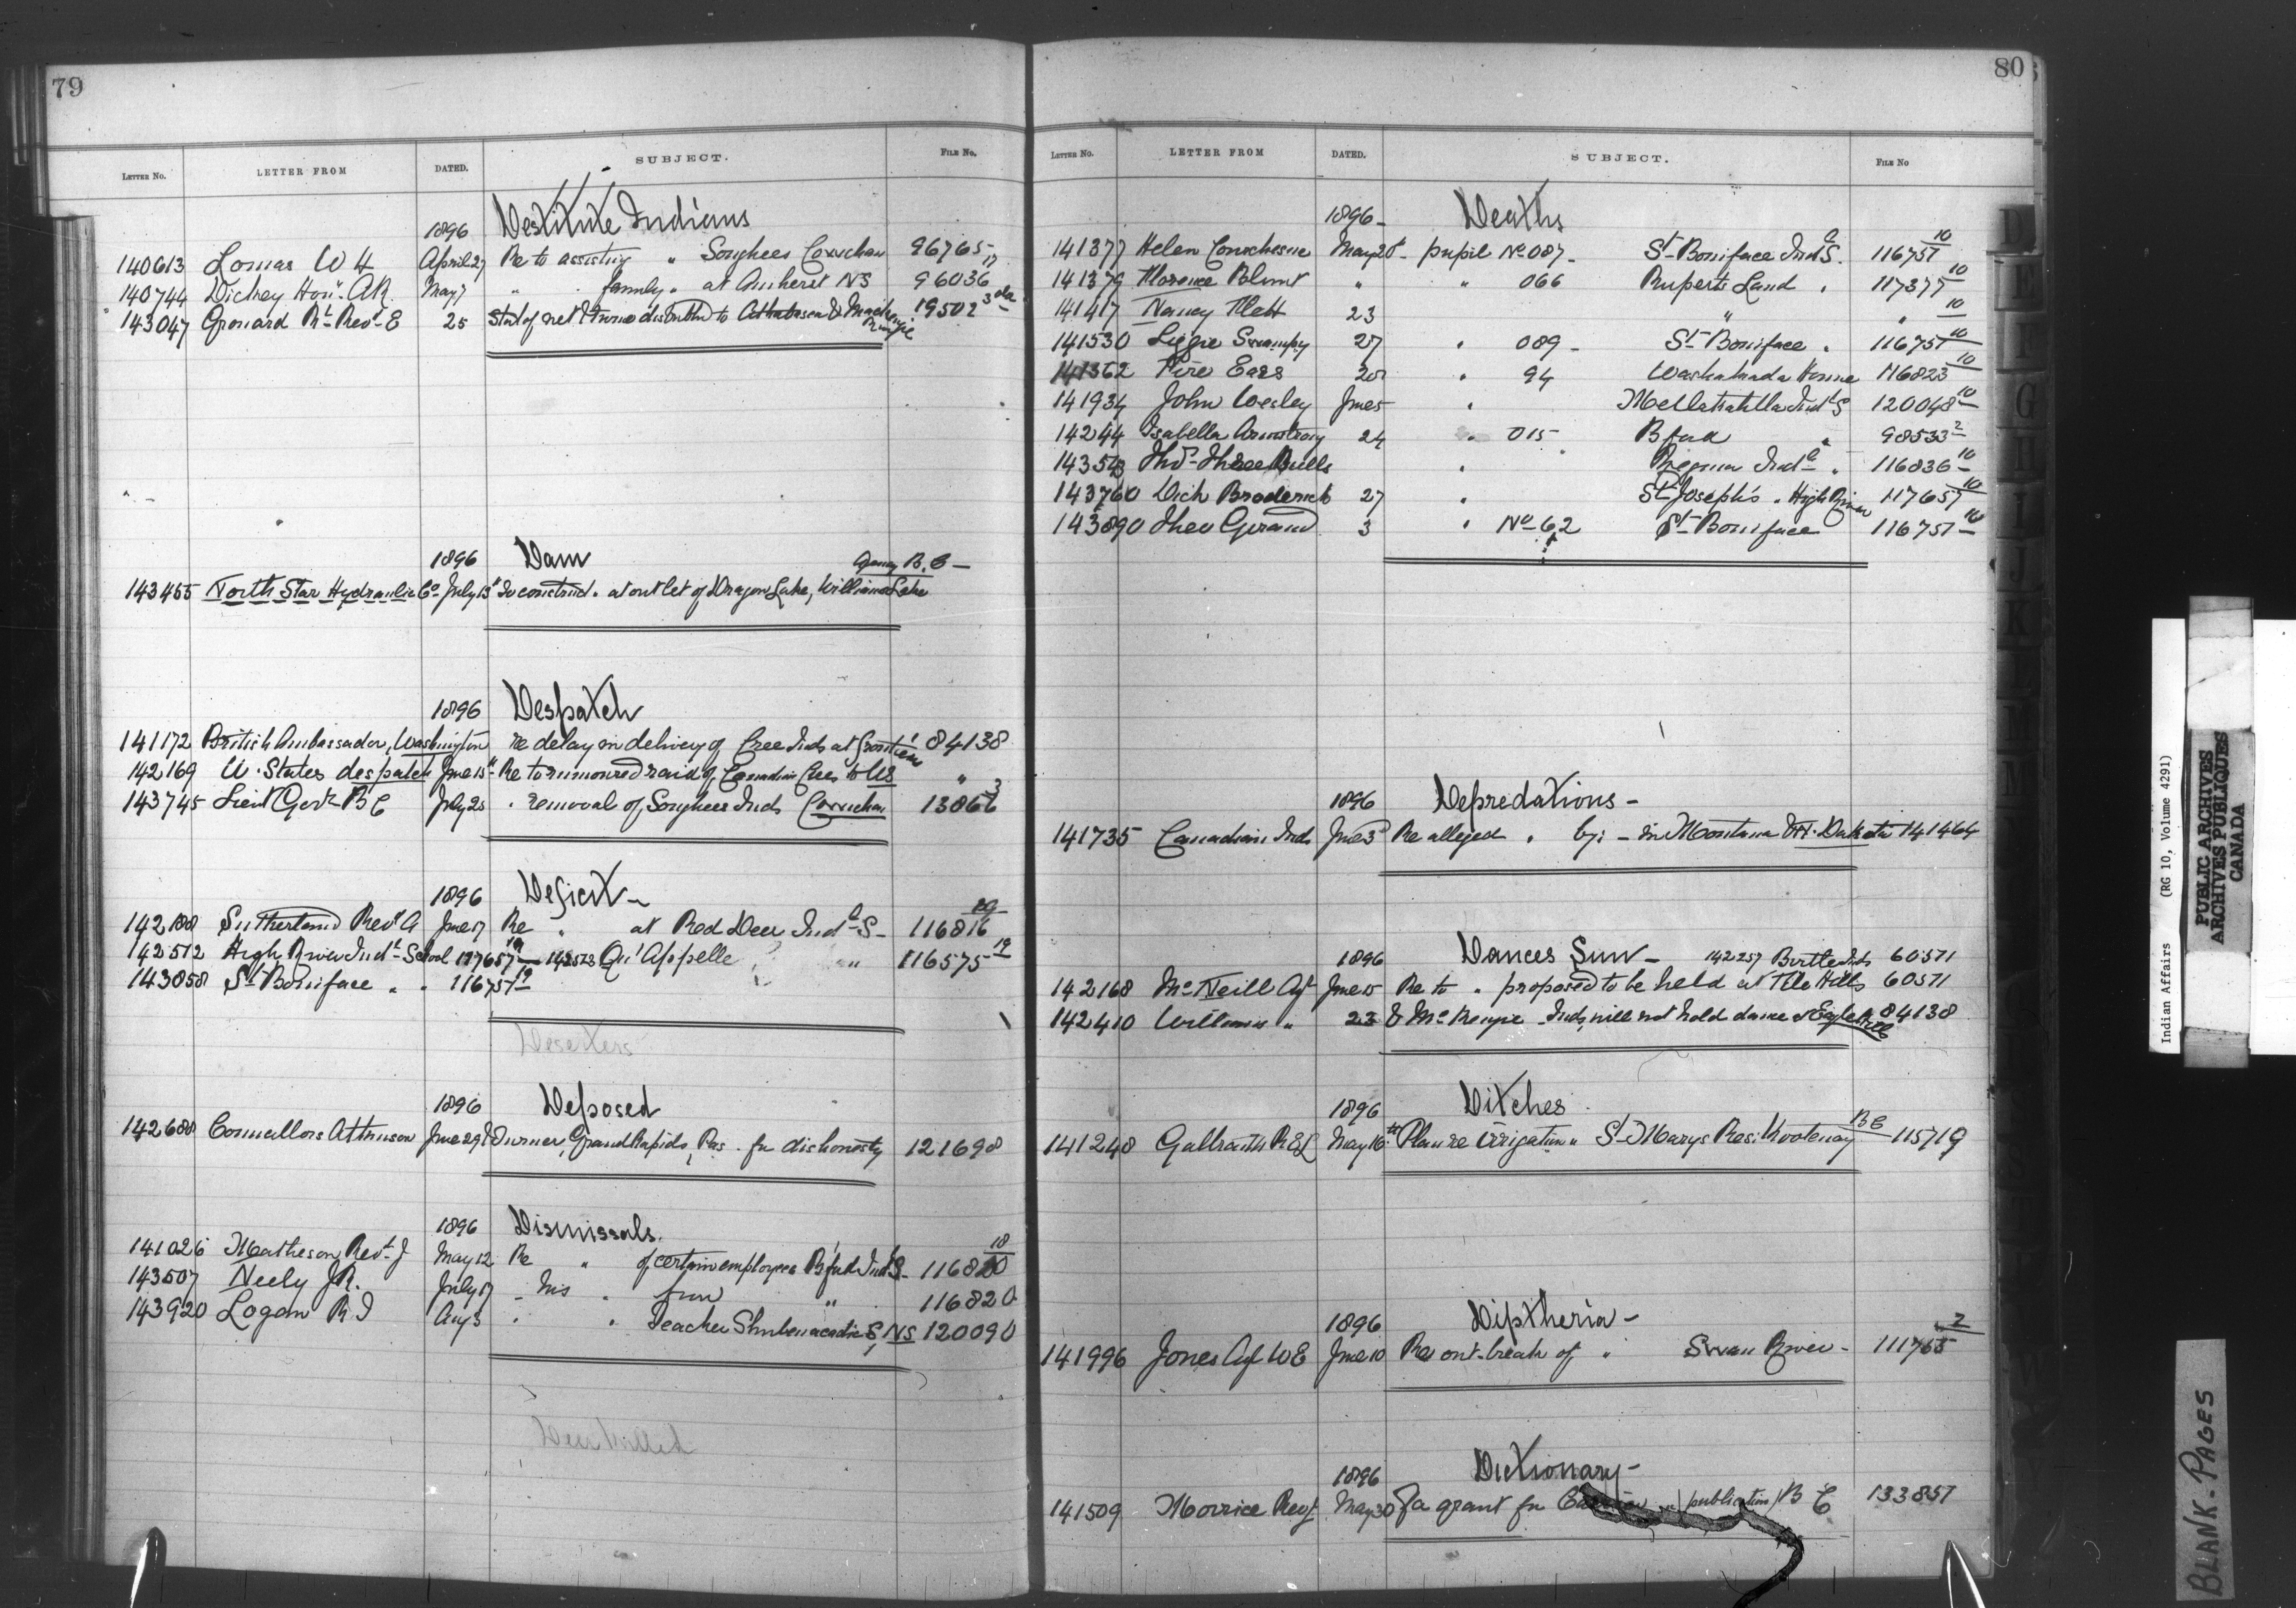 79
LETTER No. LETTER FROM DATED. SUBJECT. FILE No.
1896 Destitute Indians
140613 Lomas W H April 27 Re to assisting " Songhees Cowichan 96765 17
140744 Dickey Hon. A R. May 7 " " family " at Amherst NS 96036
143047 Grouard Rt Revd E 25 Stat of net twine distributed to Athabasca & Mackenzie 19502 3
1896 Dam Agency B.C -
143455 North Star Hydraulic Co July 13 To construct . at outlet of Dragon Lake, Williams Lake
1896 Despatch
141172 British Ambassador, Washington re delay in delivery of Cree Inds at frontier 84138
142169 U. States despatch June 15 Re to rumoured raid of Canadian Crees to US "
143745 Lieut Govr B C July 25 . removal of Songhees Inds Cowichan 13866 3
1896 Deficit -
142188 Sutherland Revd A June 17 Re " at Red Deer Indl S - 116816
142512 High River Indl School 117657 19 142513 Qu'Appelle " 116575 19
143858 St Boniface " " 116751 19
Deserters
1896 Deposed
142688 Councillors Atkinson June 29 & Turner, Grand Rapids, Pas . for dishonesty 121698
1896 Dismissals.
141026 Matheson Revd J May 12 Re " of certain employees B'ford Indl S - 116820 18
143507 Neely J R. July 17 - his . from " 116820
143920 Logan R I Aug 3 . . Teacher Shubenacadie S, NS 120090
Deer killed
80
LETTER No. LETTER FROM DATED. SUBJECT. FILE No
1896 - Deaths
141377 Helen May 20 - pupil No 087 - St Boniface Indl S. 116751 10
141379 Florence Blunt " " 066 Ruperts Land . 117377 10
141417 Nancy Flett 23 " " 10
141530 Lizzie Swampy 27 . 089 - St Boniface . 116751 10
141362 Fire Ears 20 . 94 Washakada Home 116823 10
141934 John Wesley June 5 . Metlakahtla Indl S 120048 10
14244 Isabella Armstrong 24 . 015 B'ford " 98533 2
143543 Thos Three Bulls . Regina Indl . 116836 10
143760 Dick Broderick 27 . St Joseph's . High River 117657 10
143890 Theo Girard 3 . No 62 St Boniface 116751 10
1896 Depredations -
141735 Canadian Inds June 3 Re alleged . by: - in Montana & N. Dakota 141464
1896 Dances Sun - 142257 Birtle Inds 60511
142168 McNeill Agt June 15 Re to . proposed to be held at File Hills 60511
142410 Williams " 22 & McKenzie Inds will not hold dance 84138
1896 Ditches
141248 Galbraith R L May 16th Plan re irrigation " St Marys Res. Kootenay B C 115719
1896 Diptheria -
141996 Jones Agt W E June 10 Re out-break of " Swan River - 111765 2
1896 Dictionary -
141509 Morrice Rev. May 30 a grant for publication B C 133857
Indian Affairs (RG 10, Volume 4291)
PUBLIC ARCHIVES
ARCHIVES PUBLIQUES
CANADA
BLANK-PAGES